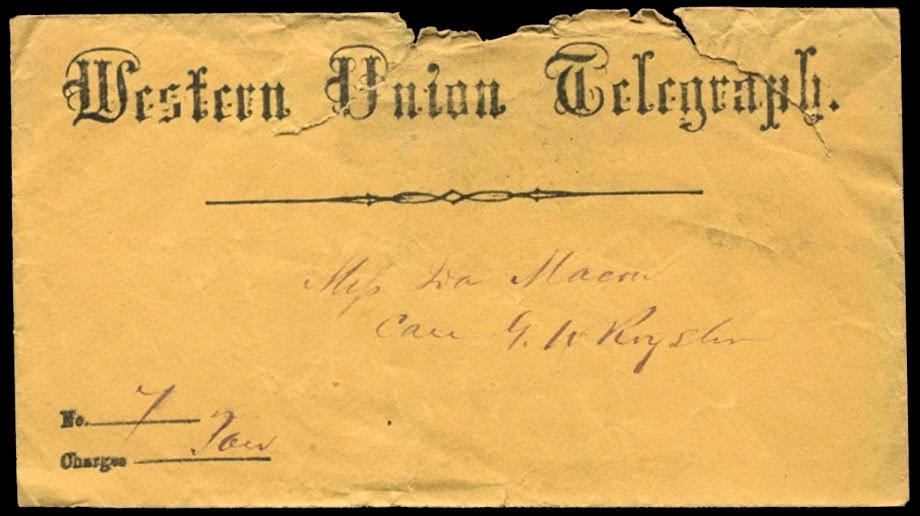 Western Union Telegraph.
Miss Ida Macon
Care G. W Royster
No. 7
Charges Paid